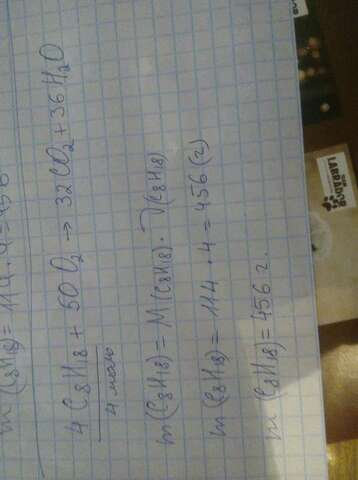 m (C8H18) = 114 · 4 = 456
4 C8H18 + 50 O2 → 32CO2 + 36H2O
4 моль
m (C8H18) = M (C8H18) · ν (C8H18)
m (C8H18) = 114 · 4 = 456 (г)
m (C8H18) = 456 г.
LABRADOR